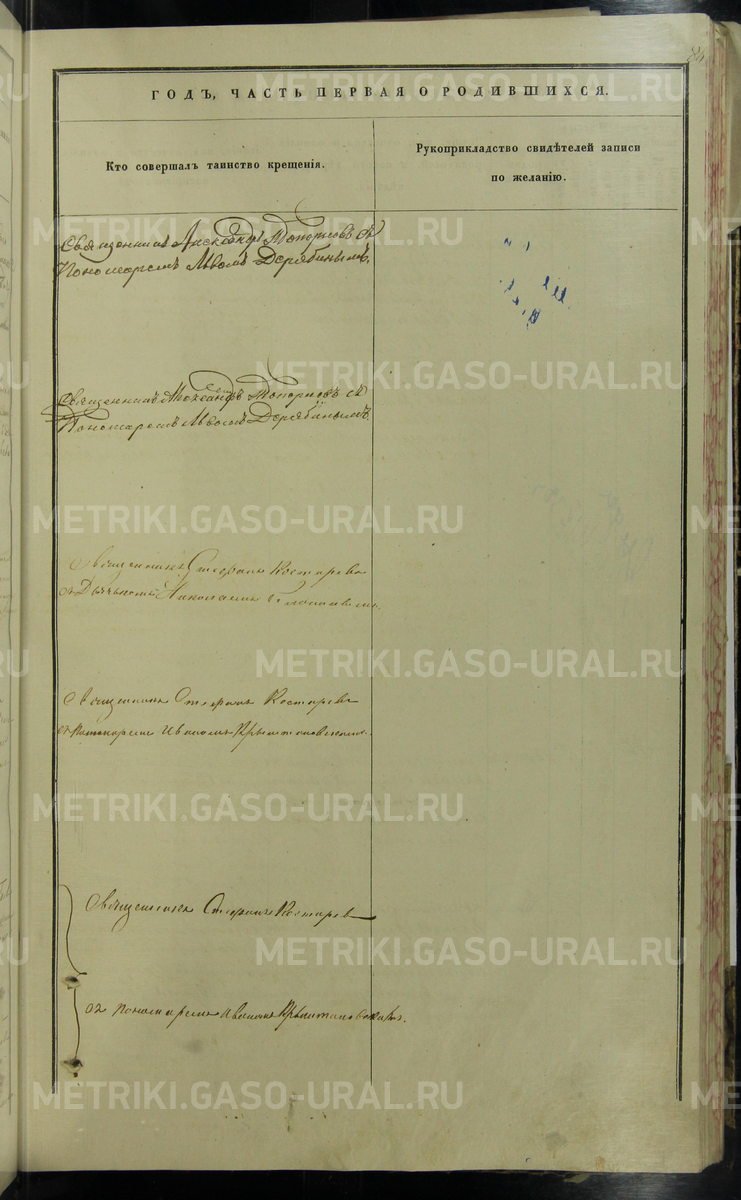 ГОДЪ, ЧАСТЬ ПЕРВАЯ О РОДИВШИХСЯ.
Кто совершалъ таинство крещенія.
Рукоприкладство свидѣтелей записи
по желанію.
Священникъ Александръ Топорковъ съ
Пономаремъ Львомъ Дерябинымъ.
Священникъ Александръ Топорковъ съ
Пономаремъ Львомъ Дерябинымъ.
Священникъ Стефанъ Костаревъ
съ Дьячкомъ Николаемъ
Священникъ Стефанъ Костаревъ
съ Пономаремъ Иваномъ
Священникъ Стефанъ Костаревъ
съ пономаремъ Иваномъ
METRIKI.GASO-URAL.RU